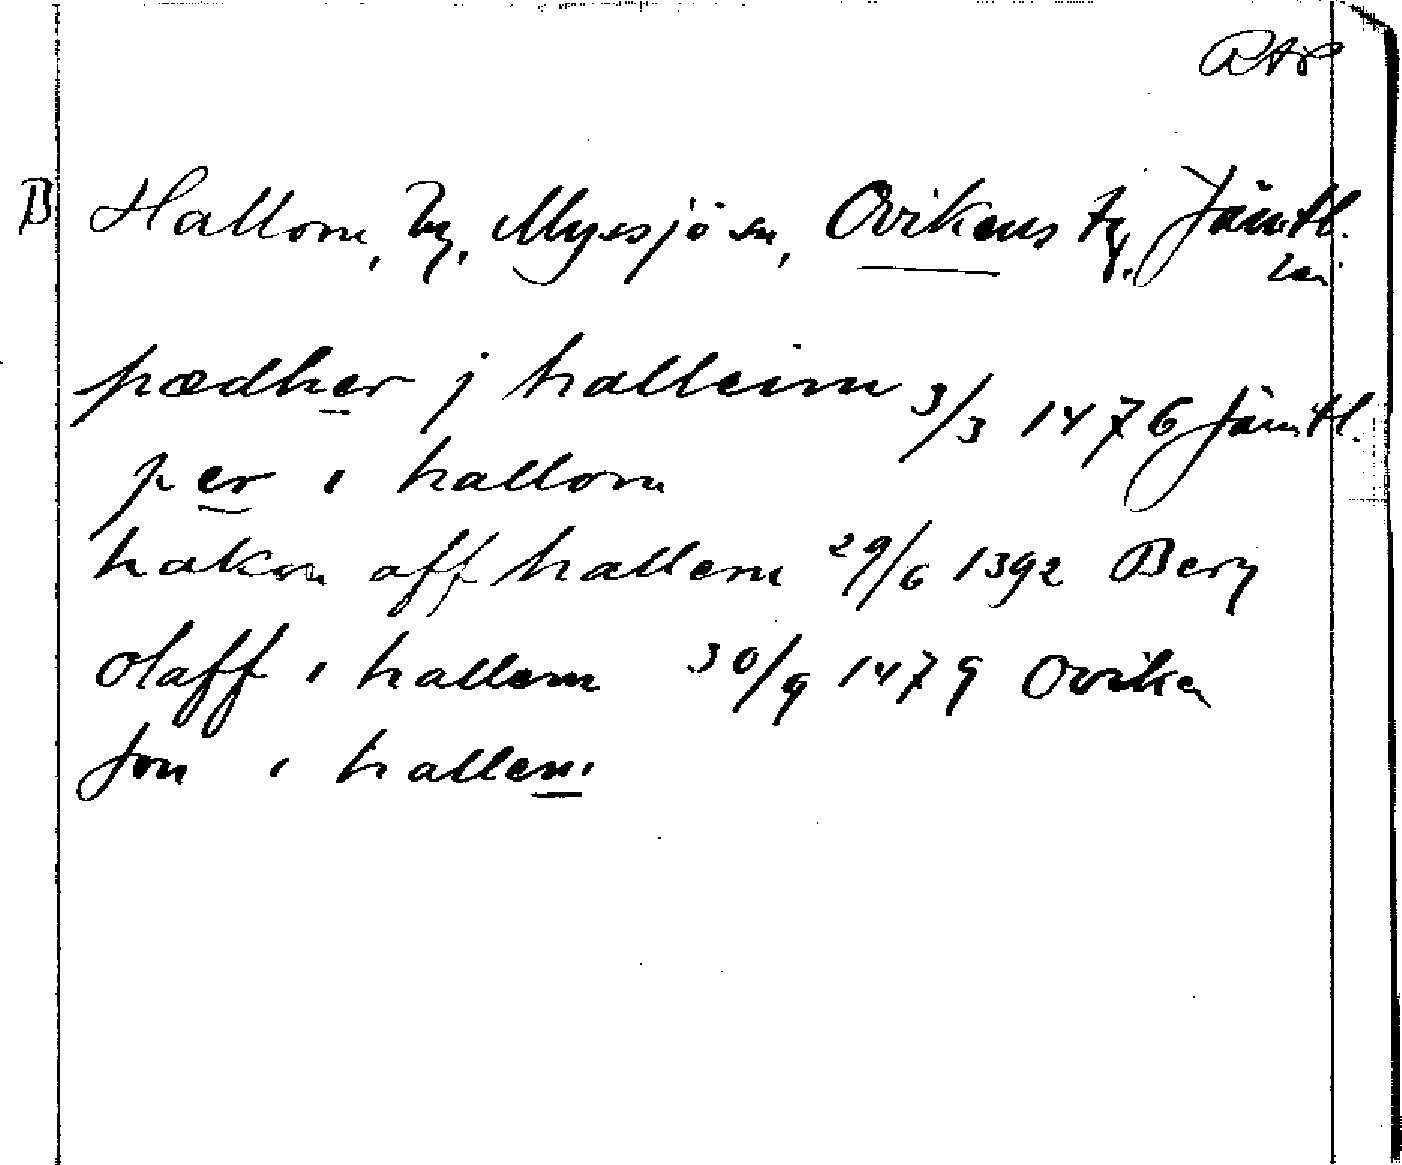 RAP
B Hallom, by, Myssjö sn, Ovikens tg, Jämtl.
län
pædher j halleim 3/3 1476 Jämtl.
per i hallom
hakon aff hallem 29/6 1392 Berg
olaff i hallem 30/9 1479 Oviken
Jon i hallem